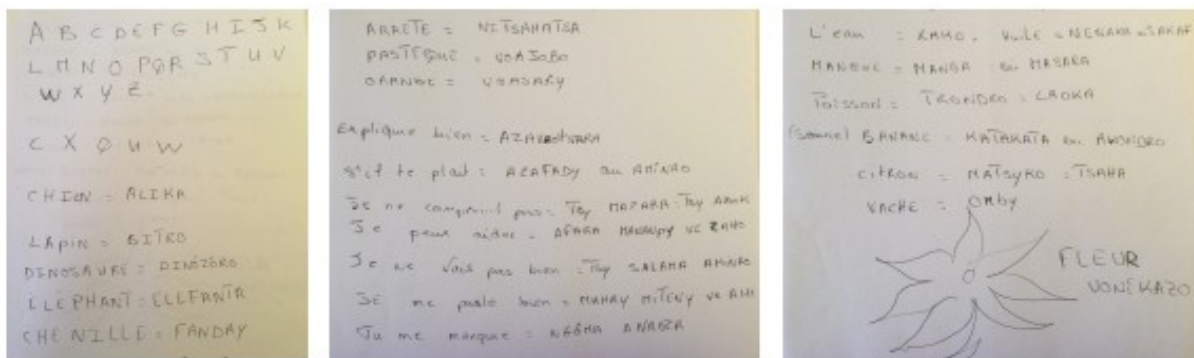 A B C D E F G H I J K
L M N O P Q R S T U V
W X Y Z.
C X Q U W
CHIEN = ALIKA
LAPIN = BITRO
DINOSAURE = DINÔZÔRO
ELEPHANT = ELEFANTA
CHENILLE = FANDAY
ARRETE = NITSAHATSA
PASTEQUE = VOAJOBO
ORANGE = VOASARY
Explique bien =
s'il te plait = AZAFADY ou AMINAO
Je ne comprend pas = Tsy MAZAVA = Tsy
Je peux aider = AFAKA VE ZAHO
Je ne vais pas bien = Tsy SALAMA AMINAO
parle bien = MAHAY MITENY VE
Tu me manque =
L'eau = RANO. Huile = MENAKA = SAKAF
MANGUE = MANGA ou MASARA
Poisson = TRONDRO = LAOKA
BANANE = KATAKATA ou AKONDRO
CITRON = MATSYRO = TSAHA
VACHE = OMBY
FLEUR
VONEKAZO